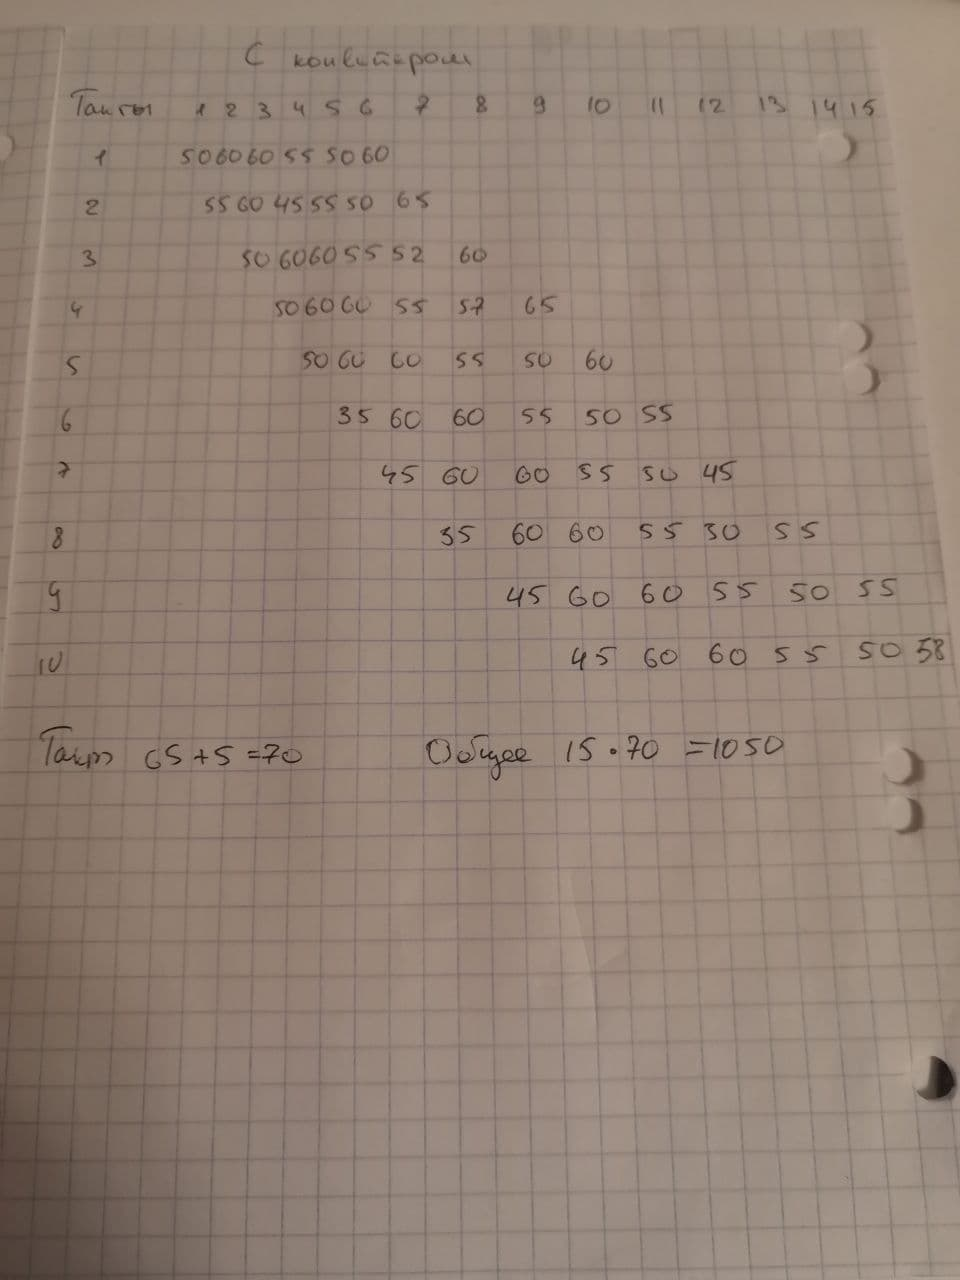 С конвейером
Такты 1 2 3 4 5 6 7 8 9 10 11 12 13 14 15
1 50 60 60 55 50 60
2 55 60 45 55 50 65
3 50 60 60 55 52 60
4 50 60 60 55 57 65
5 50 60 60 55 50 60
6 35 60 60 55 50 55
7 45 60 60 55 50 45
8 35 60 60 55 30 55
9 45 60 60 55 50 55
10 45 60 60 55 50 58
Такт 65+5=70 Общее 15·70=1050